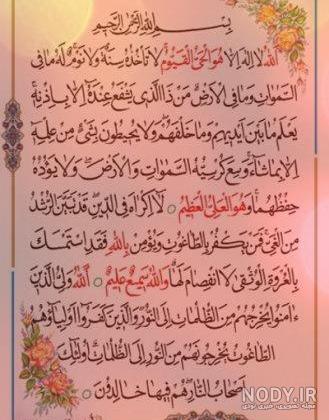 بِسْمِ اللّٰهِ الرَّحْمٰنِ الرَّحیمِ
اَللّٰهُ لا اِلٰهَ اِلّا هُوَ الْحَیُّ الْقَیّوُمُ لا تَأْخُذُهُ سِنَةٌ وَلا نَوْمٌ لَهُ مافِی
السَّمٰواتِ وَمافِی الْاَرْضِ مَنْ ذَاالَّذی یَشْفَعُ عِنْدَهُ اِلّا بِاِذْنِهِ
یَعْلَمُ مابَیْنَ اَیْدیهِمْ وَماخَلْفَهُمْ وَلا یُحیطُونَ بِشَیْءٍ مِنْ عِلْمِهِ
اِلّا بِماشآءَ وَسِعَ کُرْسِیُّهُ السَّمٰواتِ وَالْاَرْضَ وَلا یَؤُدُهُ
حِفْظُهُما وَهُوَ الْعَلِیُّ الْعَظیمُ لا اِکْراهَ فِی الدّینِ قَدْ تَبَیَّنَ الرُّشْدُ
مِنَ الْغَیِّ فَمَنْ یَکْفُرْ بِالطّاغُوتِ وَیُؤْمِنْ بِاللّٰهِ فَقَدِ اسْتَمْسَکَ
بِالْعُرْوَةِ الْوُثْقیٰ لَا انْفِصامَ لَها وَاللّٰهُ سَمیعٌ عَلیمٌ اَللّٰهُ وَلِیُّ الَّذینَ
ءامَنُوا یُخْرِجُهُمْ مِنَ الظُّلُماتِ اِلَی النُّورِ وَالَّذینَ کَفَرُوا اَوْلِیاؤُهُمُ
الطّاغُوتُ یُخْرِجُونَهُمْ مِنَ النُّورِ اِلَی الظُّلُماتِ اُولٰئِکَ
اَصْحابُ النّارِ هُمْ فیها خالِدُونَ
NODY.IR
مجله تصویری، خبری نودی